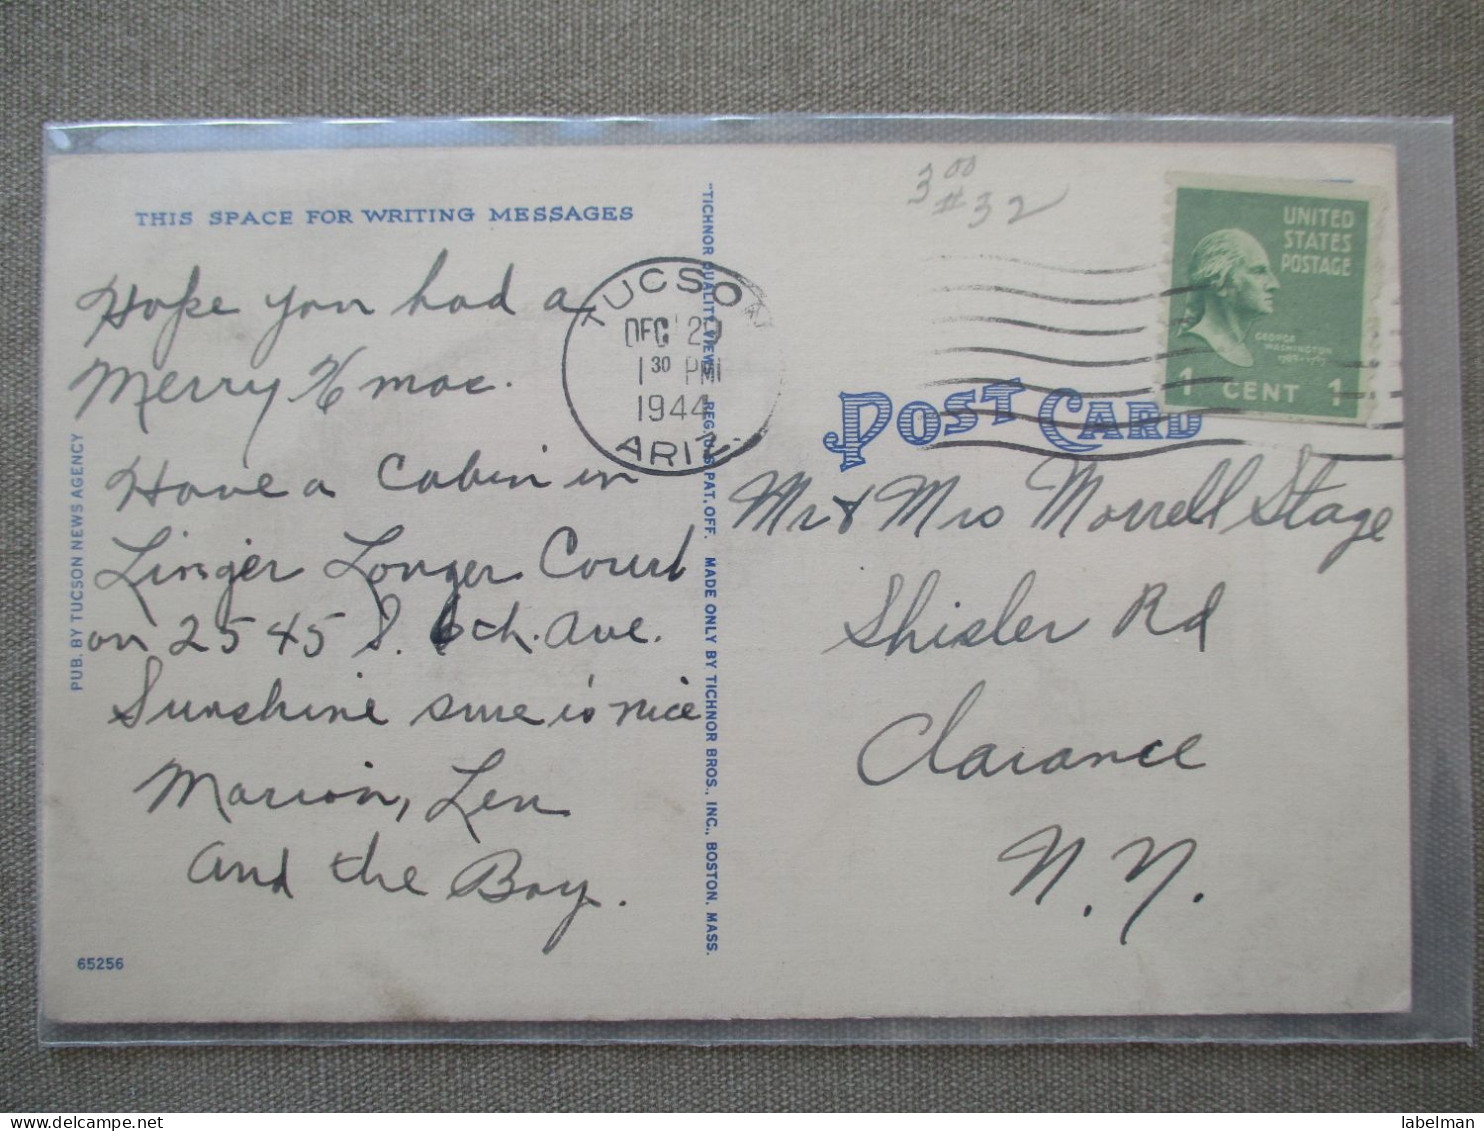 THIS SPACE FOR WRITING MESSAGES
Hope you had a
Merry Xmas.
Have a Cabin in
Linger Longer Court
on 2545 S. 6th. Ave.
Sunshine sure is nice
Marion, Len
and the Boy.
65256
PUB. BY TUCSON NEWS AGENCY
"TICHNOR QUALITY VIEWS" REG. U.S. PAT. OFF. MADE ONLY BY TICHNOR BROS., INC., BOSTON, MASS.
TUCSON
DEC 2
1 30 PM
1944
ARIZ.
3 00
# 32
UNITED
STATES
POSTAGE
GEORGE
WASHINGTON
1 CENT 1
POST CARD
Mr & Mrs Morrell Stage
Shisler Rd
Clarance
N. Y.
labelman
delcampe.net